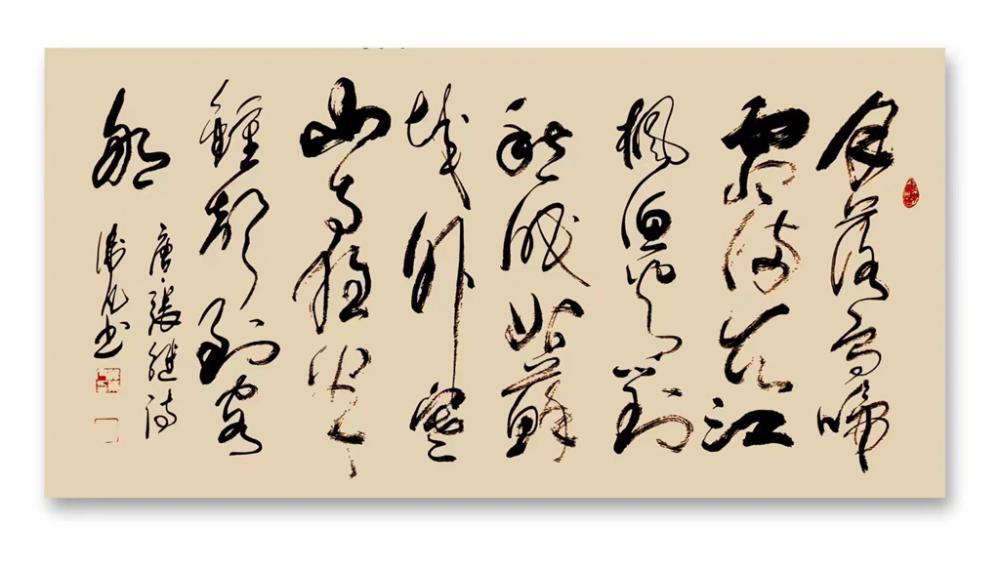 月落烏啼
霜满天江
楓渔火對
愁眠姑蘇
城外寒
山寺夜半
鐘聲到客
船
唐·張继诗
书